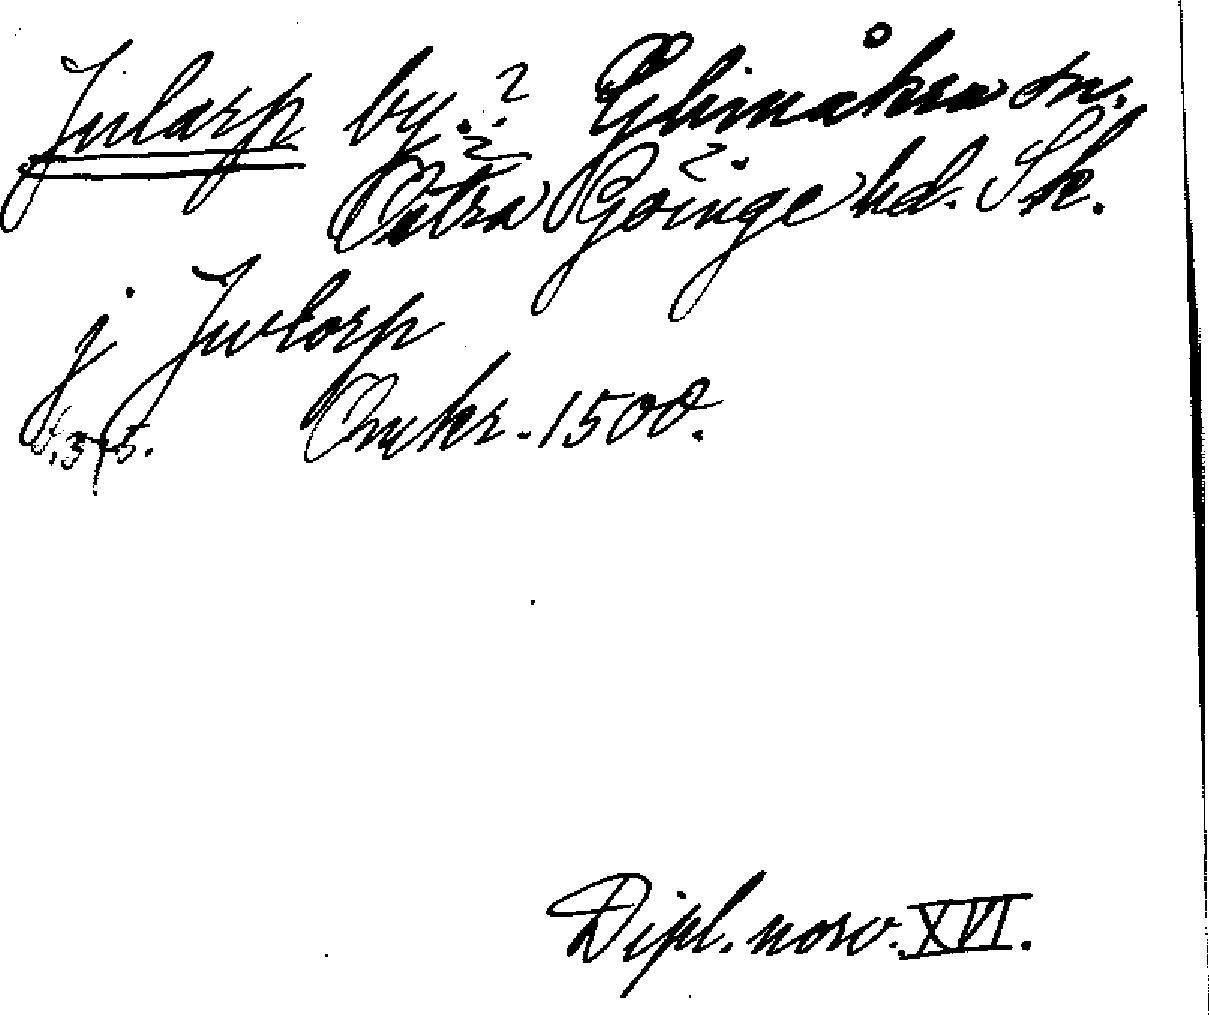 Jularp by.? Glimåkra sn.
Östra Göinge hd. Sk.
j Jwlorp
s. 375. Omkr. 1500.
Dipl. norv. XVI.